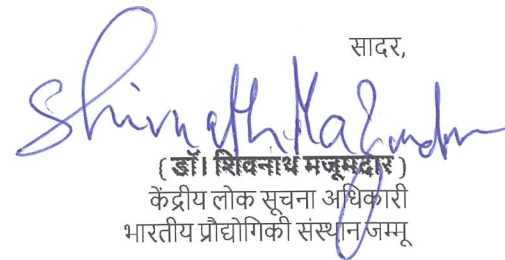 सादर,
Shivnath Mazumdar
( डॉ। शिवनाथ मजूमदार )
केंद्रीय लोक सूचना अधिकारी
भारतीय प्रौद्योगिकी संस्थान जम्मू